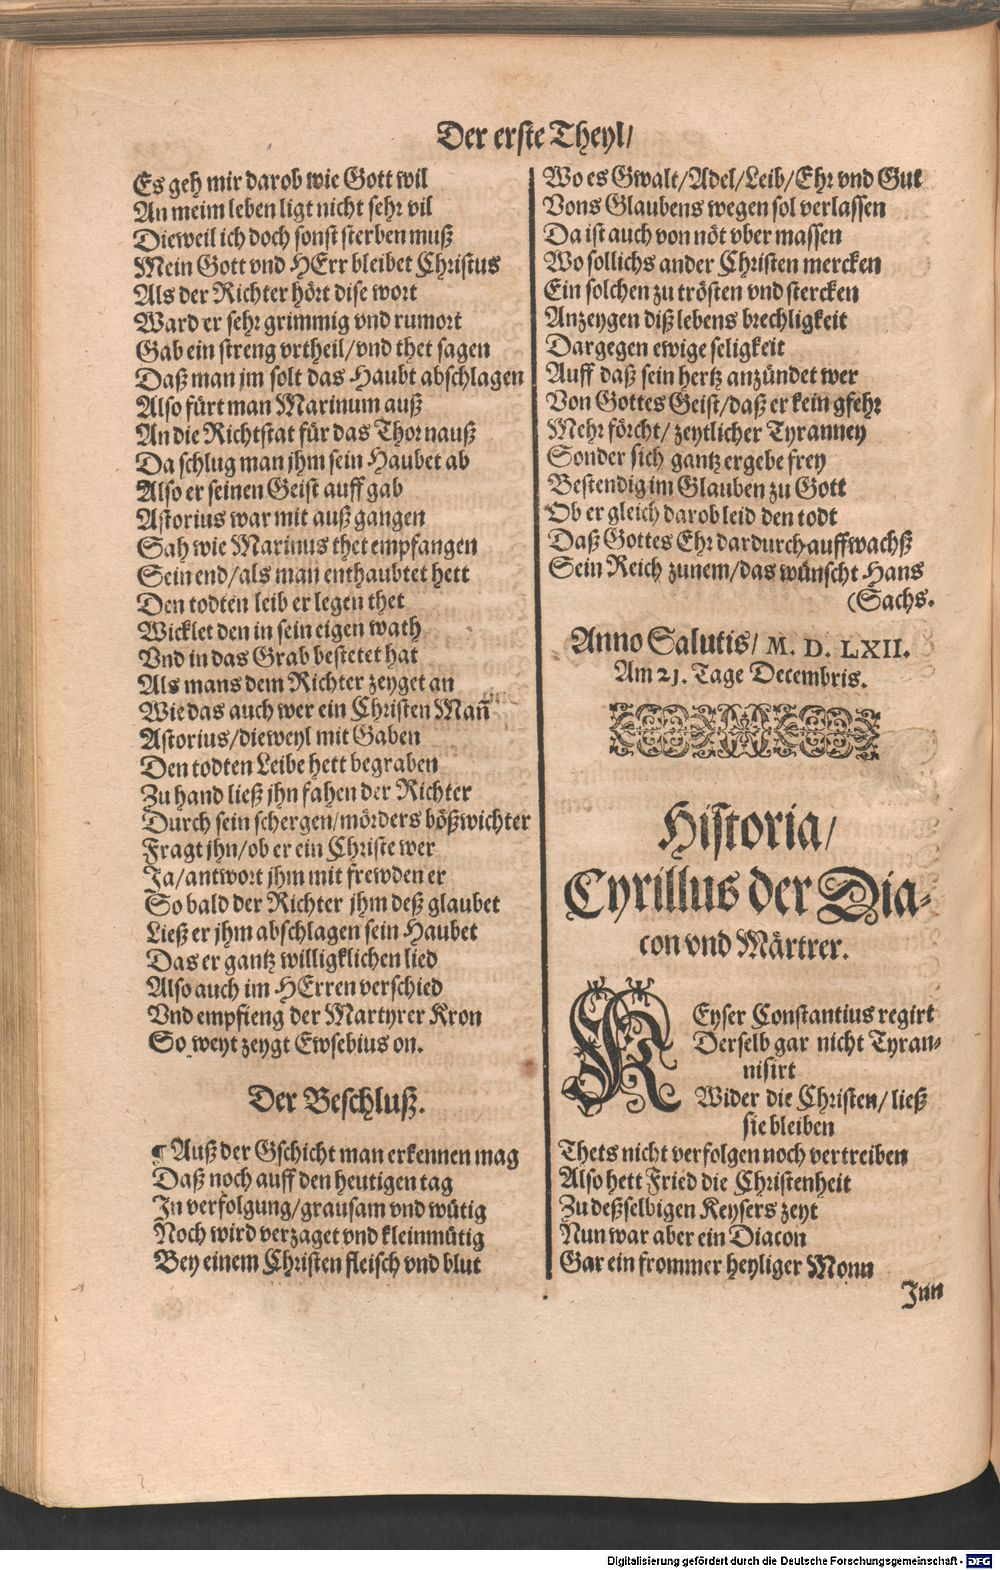 Der erste Theyl/
Es geh mir darob wie Gott wil
An meim leben ligt nicht sehr vil
Dieweil ich doch sonst sterben muß
Mein Gott vnd HErr bleibet Christus
Als der Richter hört dise wort
Ward er sehr grimmig vnd rumort
Gab ein streng vrtheil/vnd thet sagen
Daß man jm solt das Haubt abschlagen
Also fürt man Marinum auß
An die Richtstat für das Thor nauß
Da schlug man jhm sein Haubet ab
Also er seinen Geist auff gab
Astorius war mit auß gangen
Sah wie Marinus thet empfangen
Sein end/als man enthaubtet hett
Den todten leib er legen thet
Wicklet den in sein eigen wath
Vnd in das Grab bestetet hat
Als mans dem Richter zeyget an
Wie das auch wer ein Christen Mañ
Astorius/dieweyl mit Gaben
Den todten Leibe hett begraben
Zu hand ließ jhn fahen der Richter
Durch sein schergen/mörders bößwichter
Fragt jhn/ob er ein Christe wer
Ja/antwort jhm mit frewden er
So bald der Richter jhm deß glaubet
Ließ er jhm abschlagen sein Haubet
Das er gantz willigklichen lied
Also auch im HErren verschied
Vnd empfieng der Martyrer Kron
So weyt zeygt Ewsebius on.
Der Beschluß.
¶ Auß der Gschicht man erkennen mag
Daß noch auff den heutigen tag
In verfolgung/grausam vnd wütig
Noch wird verzaget vnd kleinmütig
Bey einem Christen fleisch vnd blut
Wo es Gwalt/Adel/Leib/Ehr vnd Gut
Vons Glaubens wegen sol verlassen
Da ist auch von nöt vber massen
Wo sollichs ander Christen mercken
Ein solchen zu trösten vnd stercken
Anzeygen diß lebens brechligkeit
Dargegen ewige seligkeit
Auff daß sein hertz anzündet wer
Von Gottes Geist/daß er kein gfehr
Mehr förcht/ zeytlicher Tyranney
Sonder sich gantz ergebe frey
Bestendig im Glauben zu Gott
Ob er gleich darob leid den todt
Daß Gottes Ehr dardurch auffwachß
Sein Reich zunem/das wünscht Hans
(Sachs.
Anno Salutis/ M. D. LXII.
Am 21. Tage Decembris.
Historia/
Cyrillus der Dia-
con vnd Märtrer.
KEyser Constantius regirt
Derselb gar nicht Tyran-
nisirt
Wider die Christen/ ließ
sie bleiben
Thets nicht verfolgen noch vertreiben
Also hett Fried die Christenheit
Zu deßselbigen Keysers zeyt
Nun war aber ein Diacon
Gar ein frommer heyliger Monn
Inn
Digitalisierung gefördert durch die Deutsche Forschungsgemeinschaft - DFG